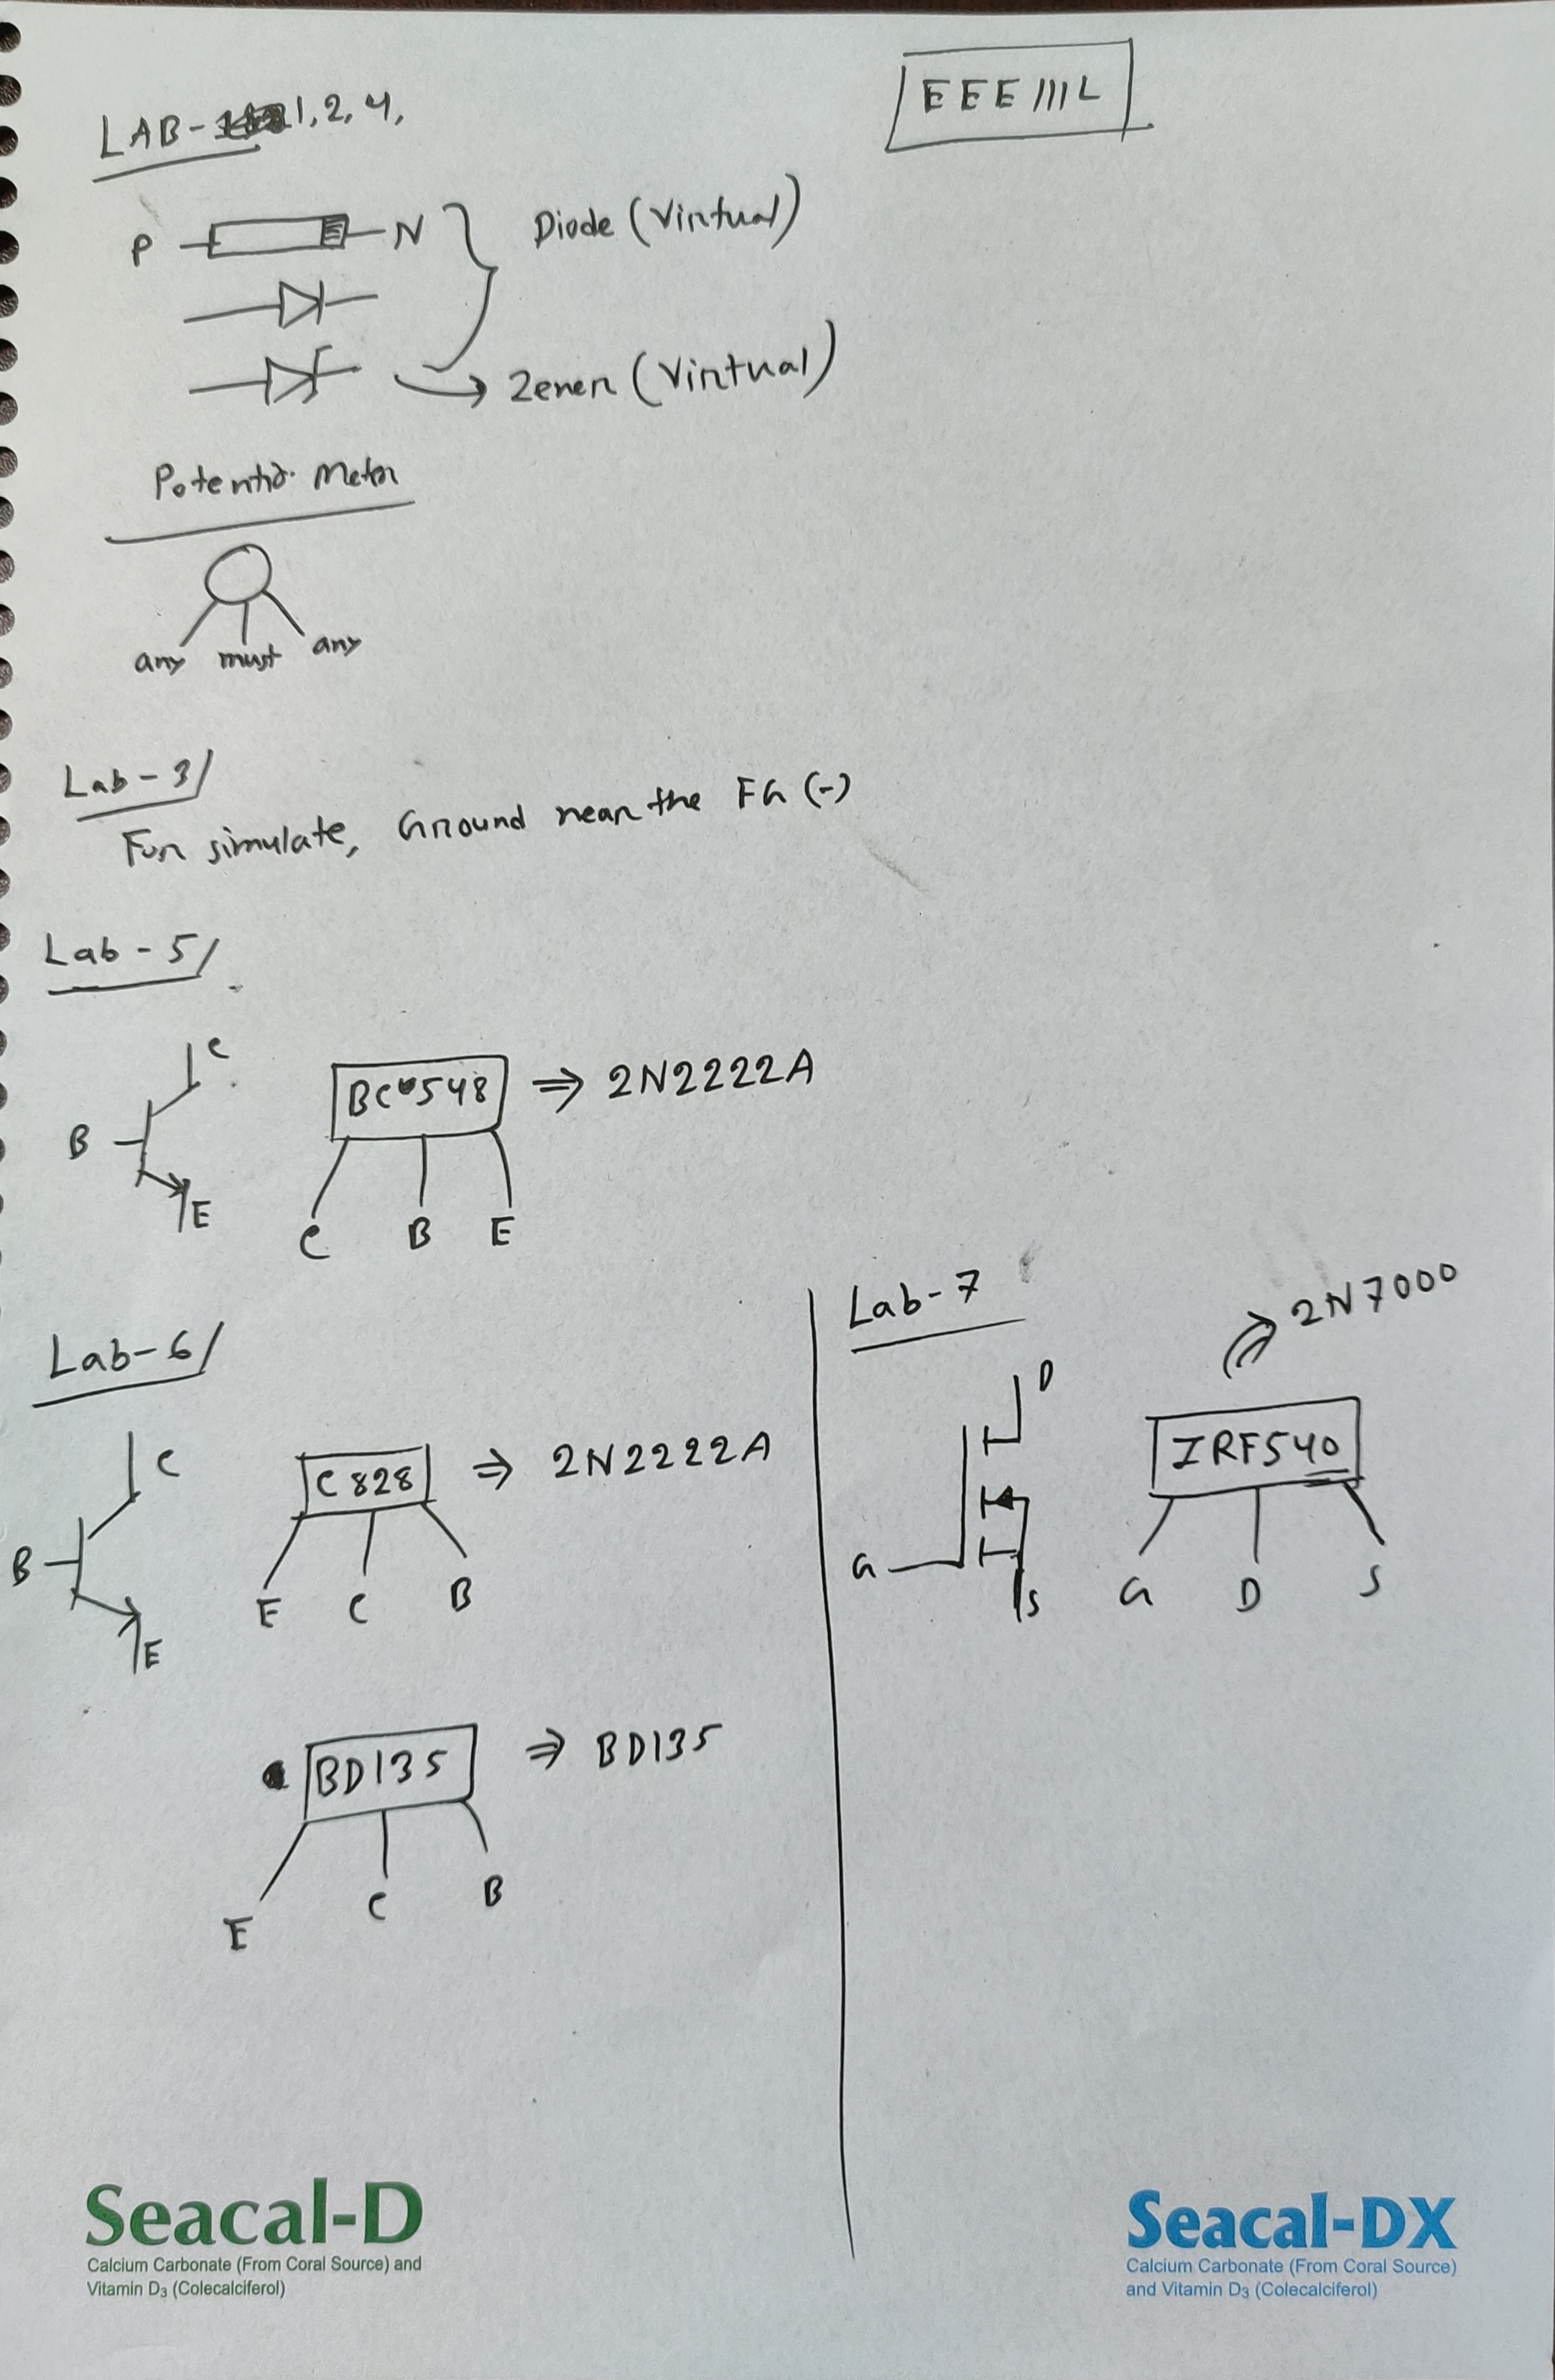 EEE111L
LAB- 1, 2, 4,
P N Diode (Virtual)
→ Zener (Virtual)
Potentio Meter
any must any
Lab-3/
For simulate, Ground near the FG (-)
Lab-5/
C
B
E
BC548 ⇒ 2N2222A
C B E
Lab-6/
C
B
E
C828 ⇒ 2N2222A
E C B
BD135 ⇒ BD135
E C B
Lab-7
⇒ 2N7000
D
G
S
IRF540
G D S
Seacal-D
Calcium Carbonate (From Coral Source) and
Vitamin D3 (Colecalciferol)
Seacal-DX
Calcium Carbonate (From Coral Source)
and Vitamin D3 (Colecalciferol)